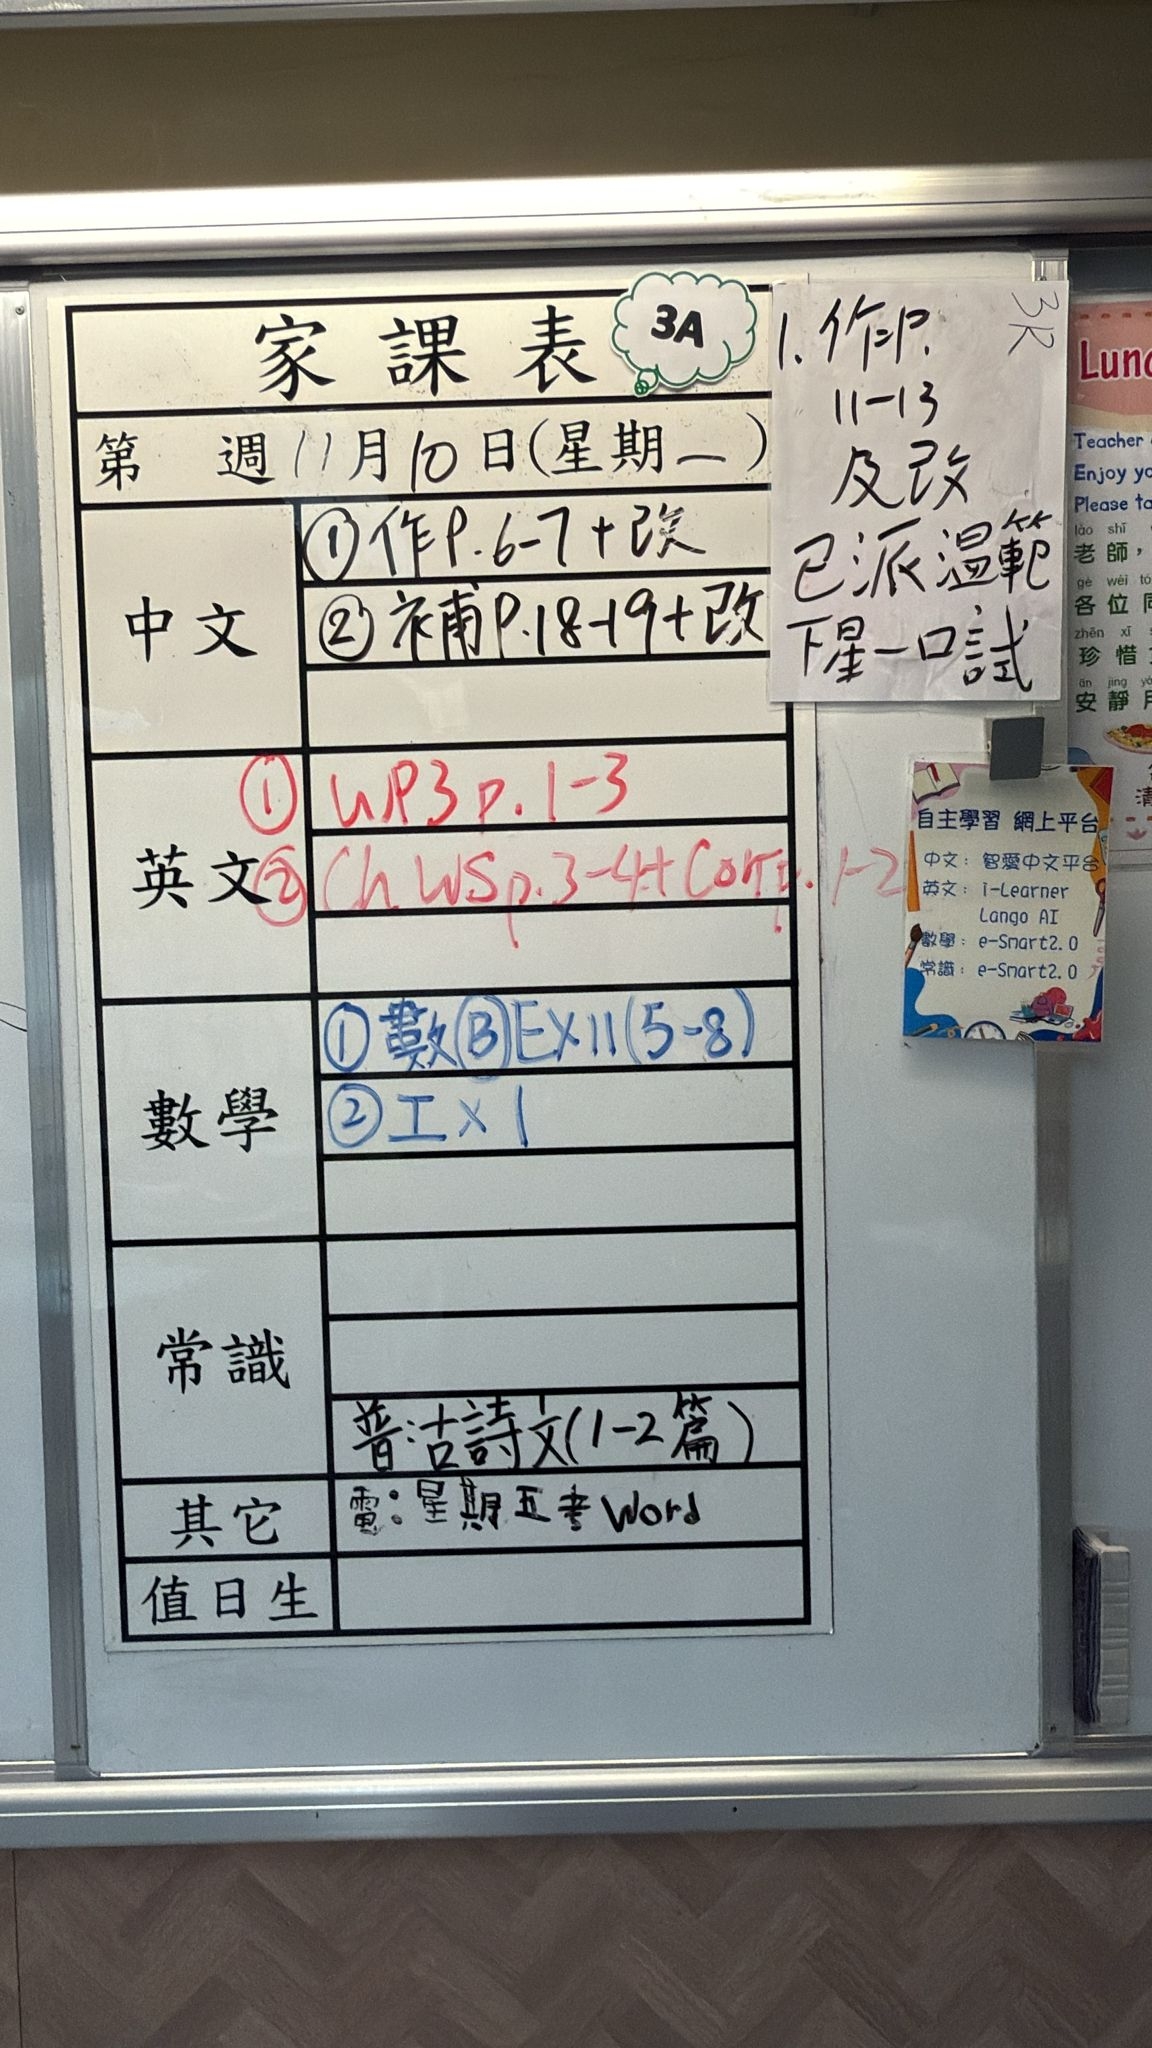 家課表
3A
第 週 11月10日(星期一)
中文
①作P.6-7+改
②補P.18-19+改
英文
① WP3 p.1-3
② Ch WS p.3-4+Corr p.1-2
數學
①數(B)EX11(5-8)
②工×1
常識
普:古詩文(1-2篇)
其它
電:星期五考Word
值日生
3R
1.作P.
11-13
及改
已派溫範
下星一口試
自主學習 網上平台
中文: 智愛中文平台
英文: i-Learner
Lango AI
數學: e-Smart2.0
常識: e-Smart2.0
Teacher
Enjoy
Please
lǎo shī
老師,
gè wèi
各位
zhēn xī
珍惜
ān jìng
安靜